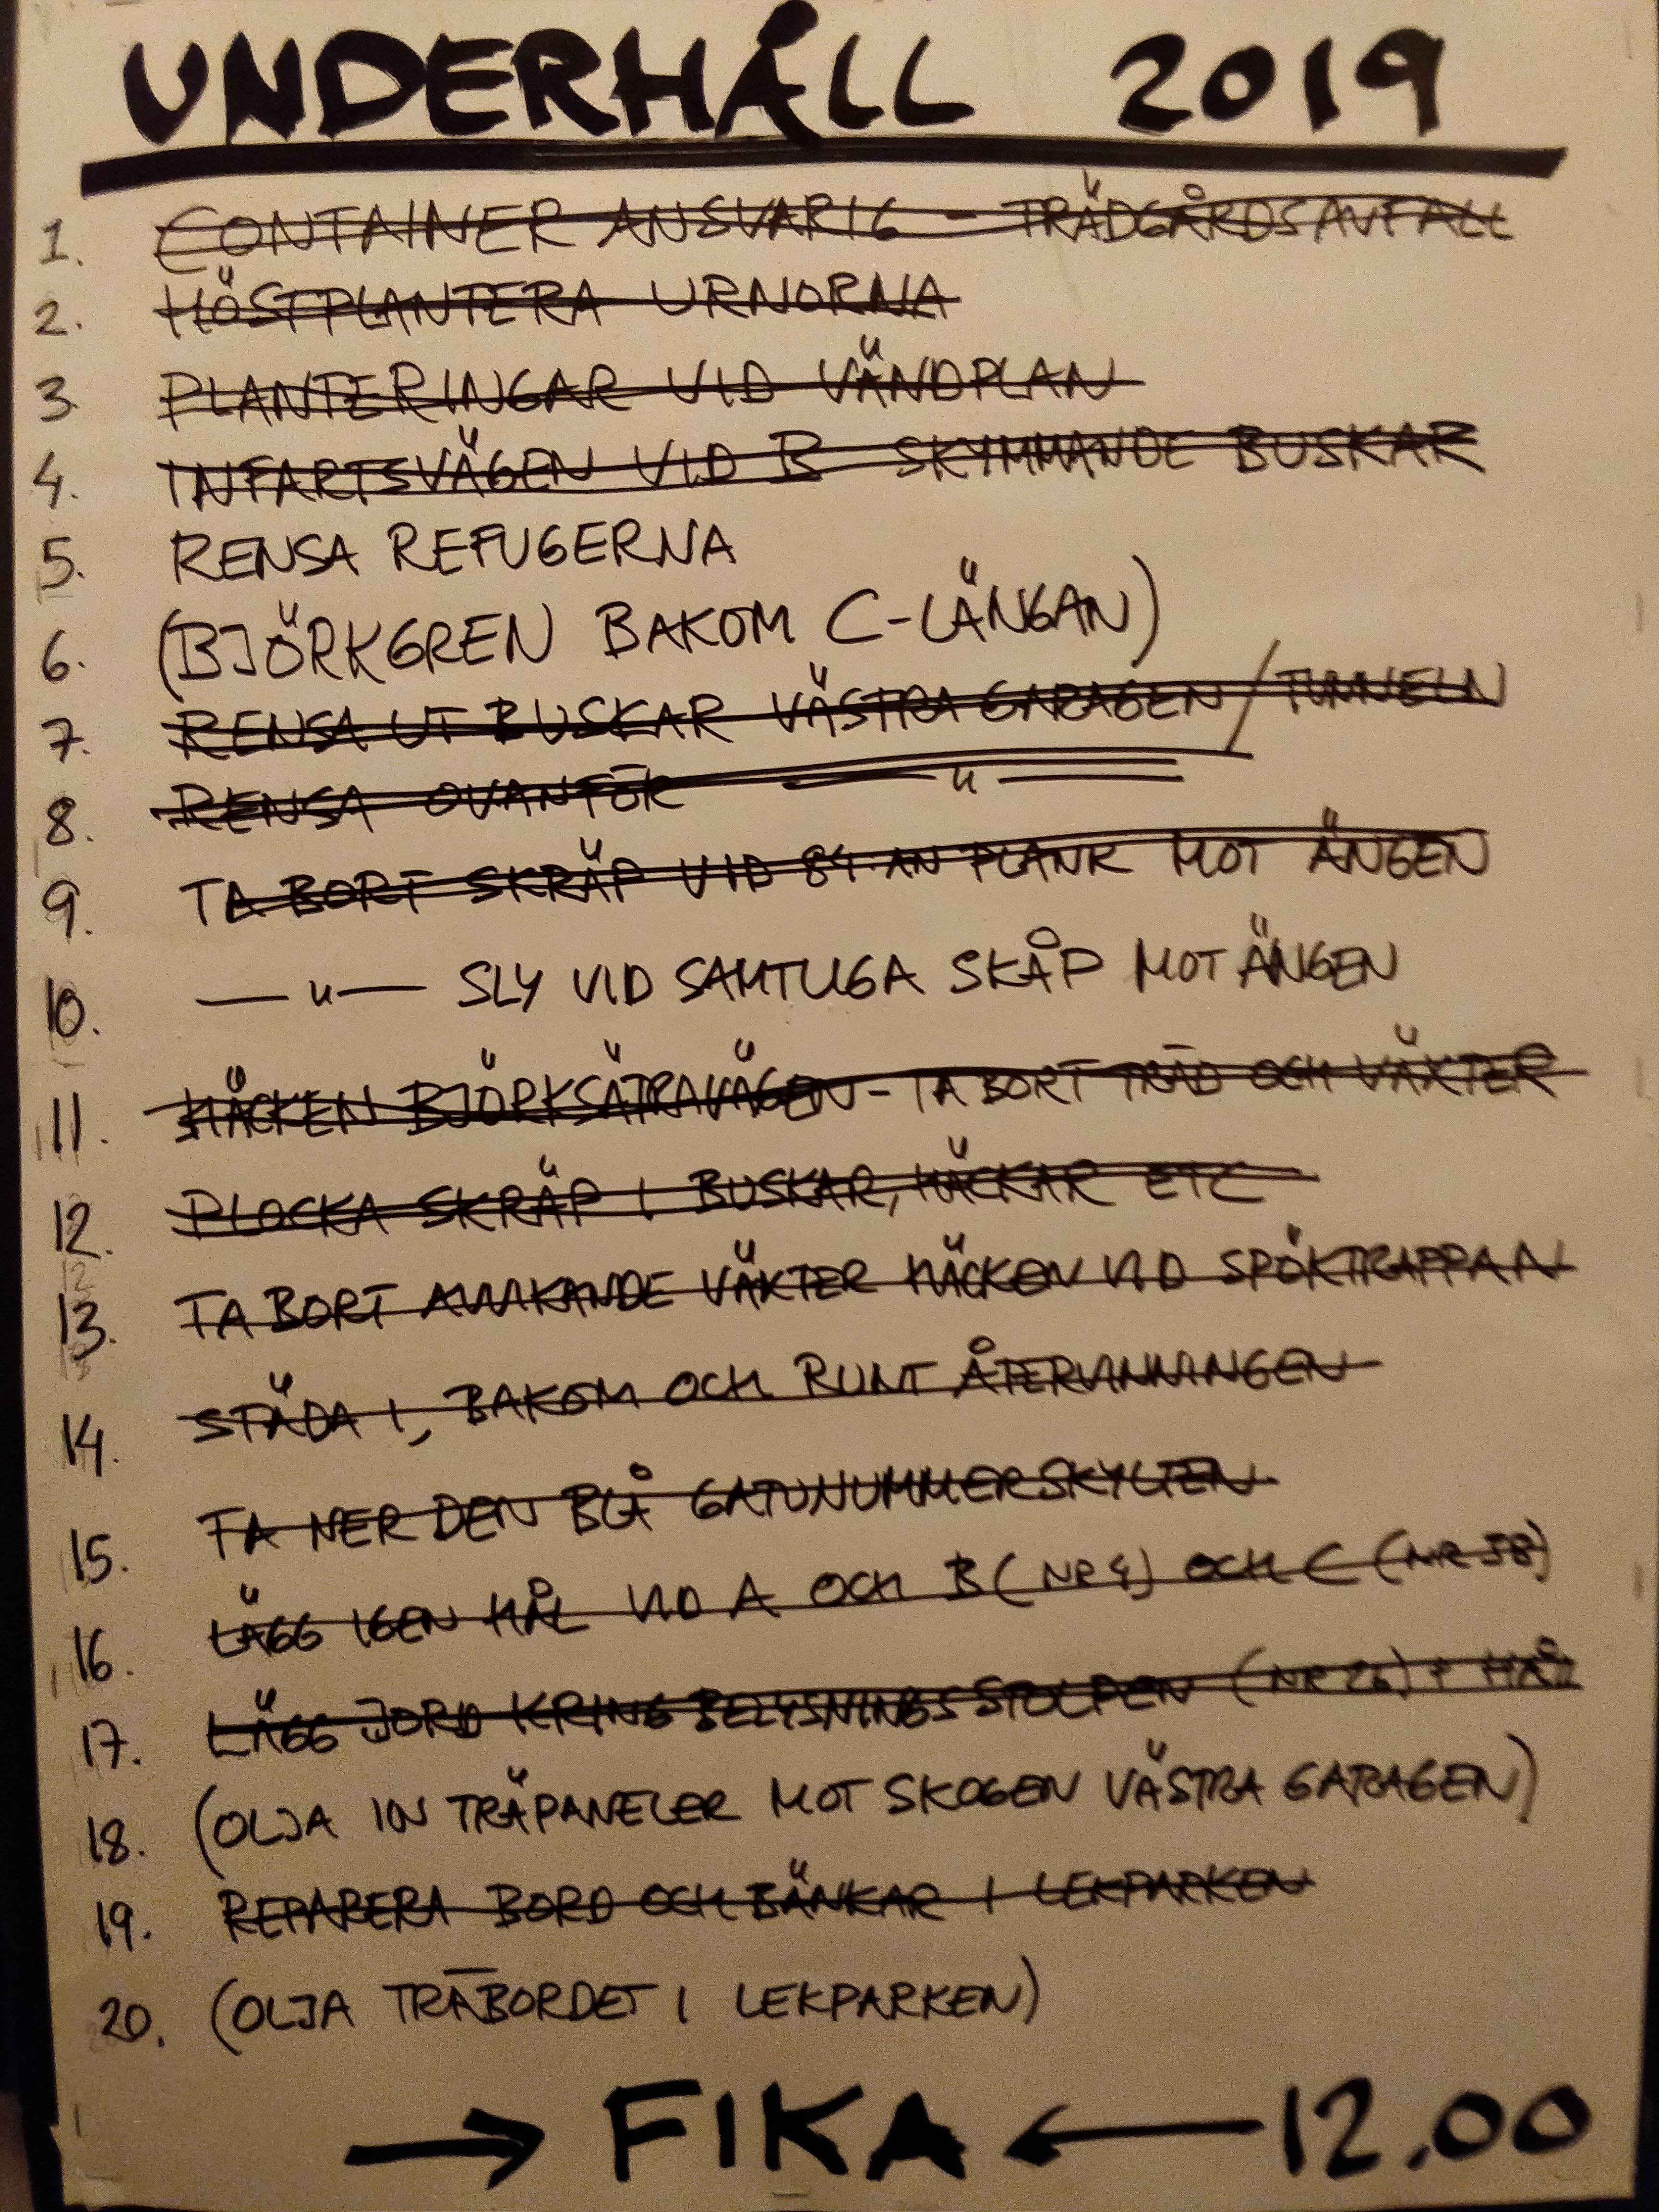 UNDERHÅLL 2019
1. CONTAINER ANSVARIG - TRÄDGÅRDSAVFALL
2. HÖSTPLANTERA URNORNA
3. PLANTERINGAR VID VÄNDPLAN
4. INFARTSVÄGEN VID B SKYMMANDE BUSKAR
5. RENSA REFUGERNA
6. (BJÖRKGREN BAKOM C-LÄNGAN)
7. RENSA UT BUSKAR VÄSTRA GARAGEN/TUNNELN
8. RENSA OVANFÖR — " —
9. TA BORT SKRÄP VID 84:AN PLANK MOT ÄNGEN
10. — " — SLY VID SAMTLIGA SKÅP MOT ÄNGEN
11. HÄCKEN BJÖRKSÄTRAVÄGEN - TA BORT TRÄD OCH VÄXTER
12. PLOCKA SKRÄP I BUSKAR, HÄCKAR ETC
13. TA BORT AVVIKANDE VÄXTER HÄCKEN VID SPÖKTRAPPAN
14. STÄDA I, BAKOM OCH RUNT ÅTERVINNINGEN
15. TA NER DEN BLÅ GATUNUMMERSKYLTEN
16. LÄGG IGEN HÅL VID A OCH B (NR 4) OCH C (NR 58)
17. LÄGG JORD KRING BELYSNINGSSTOLPEN (NR 26) + HÅL
18. (OLJA IN TRÄPANELER MOT SKOGEN VÄSTRA GARAGEN)
19. REPARERA BORD OCH BÄNKAR I LEKPARKEN
20. (OLJA TRÄBORDET I LEKPARKEN)
→ FIKA ← 12.00